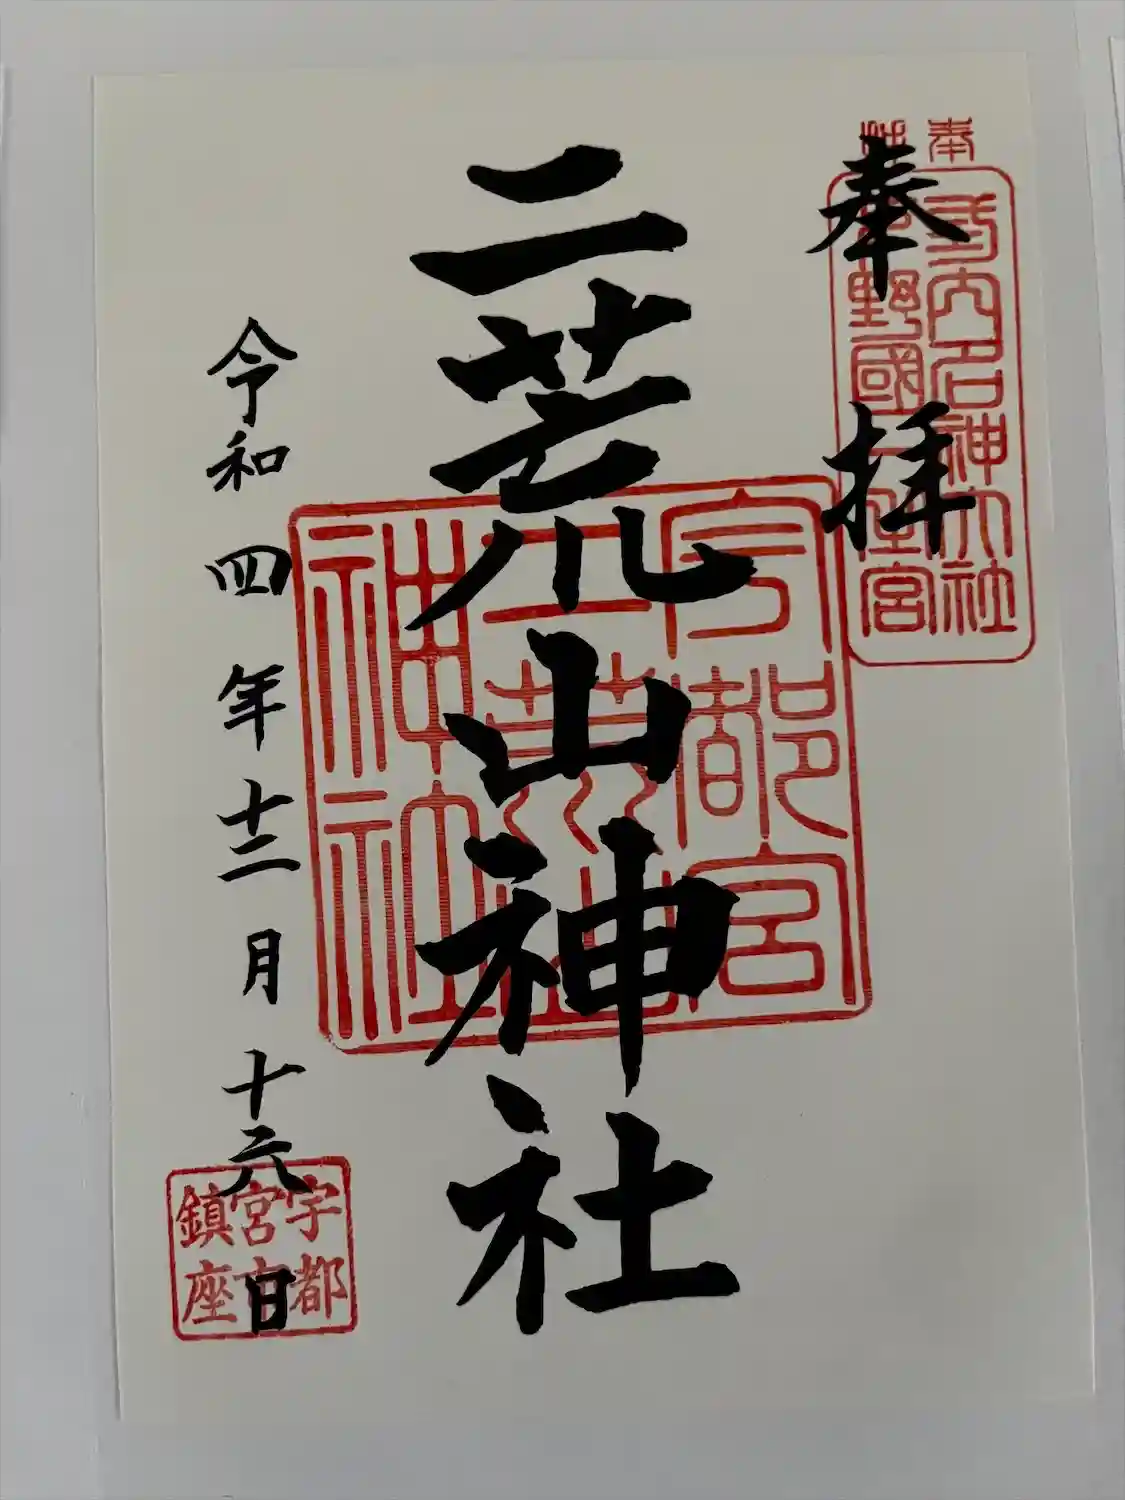 奉拝
式内名神大社
下野國一之宮
二荒山神社
宇都宮
二荒山
神社
令和四年十二月十六日
宇都
宮市
鎮座